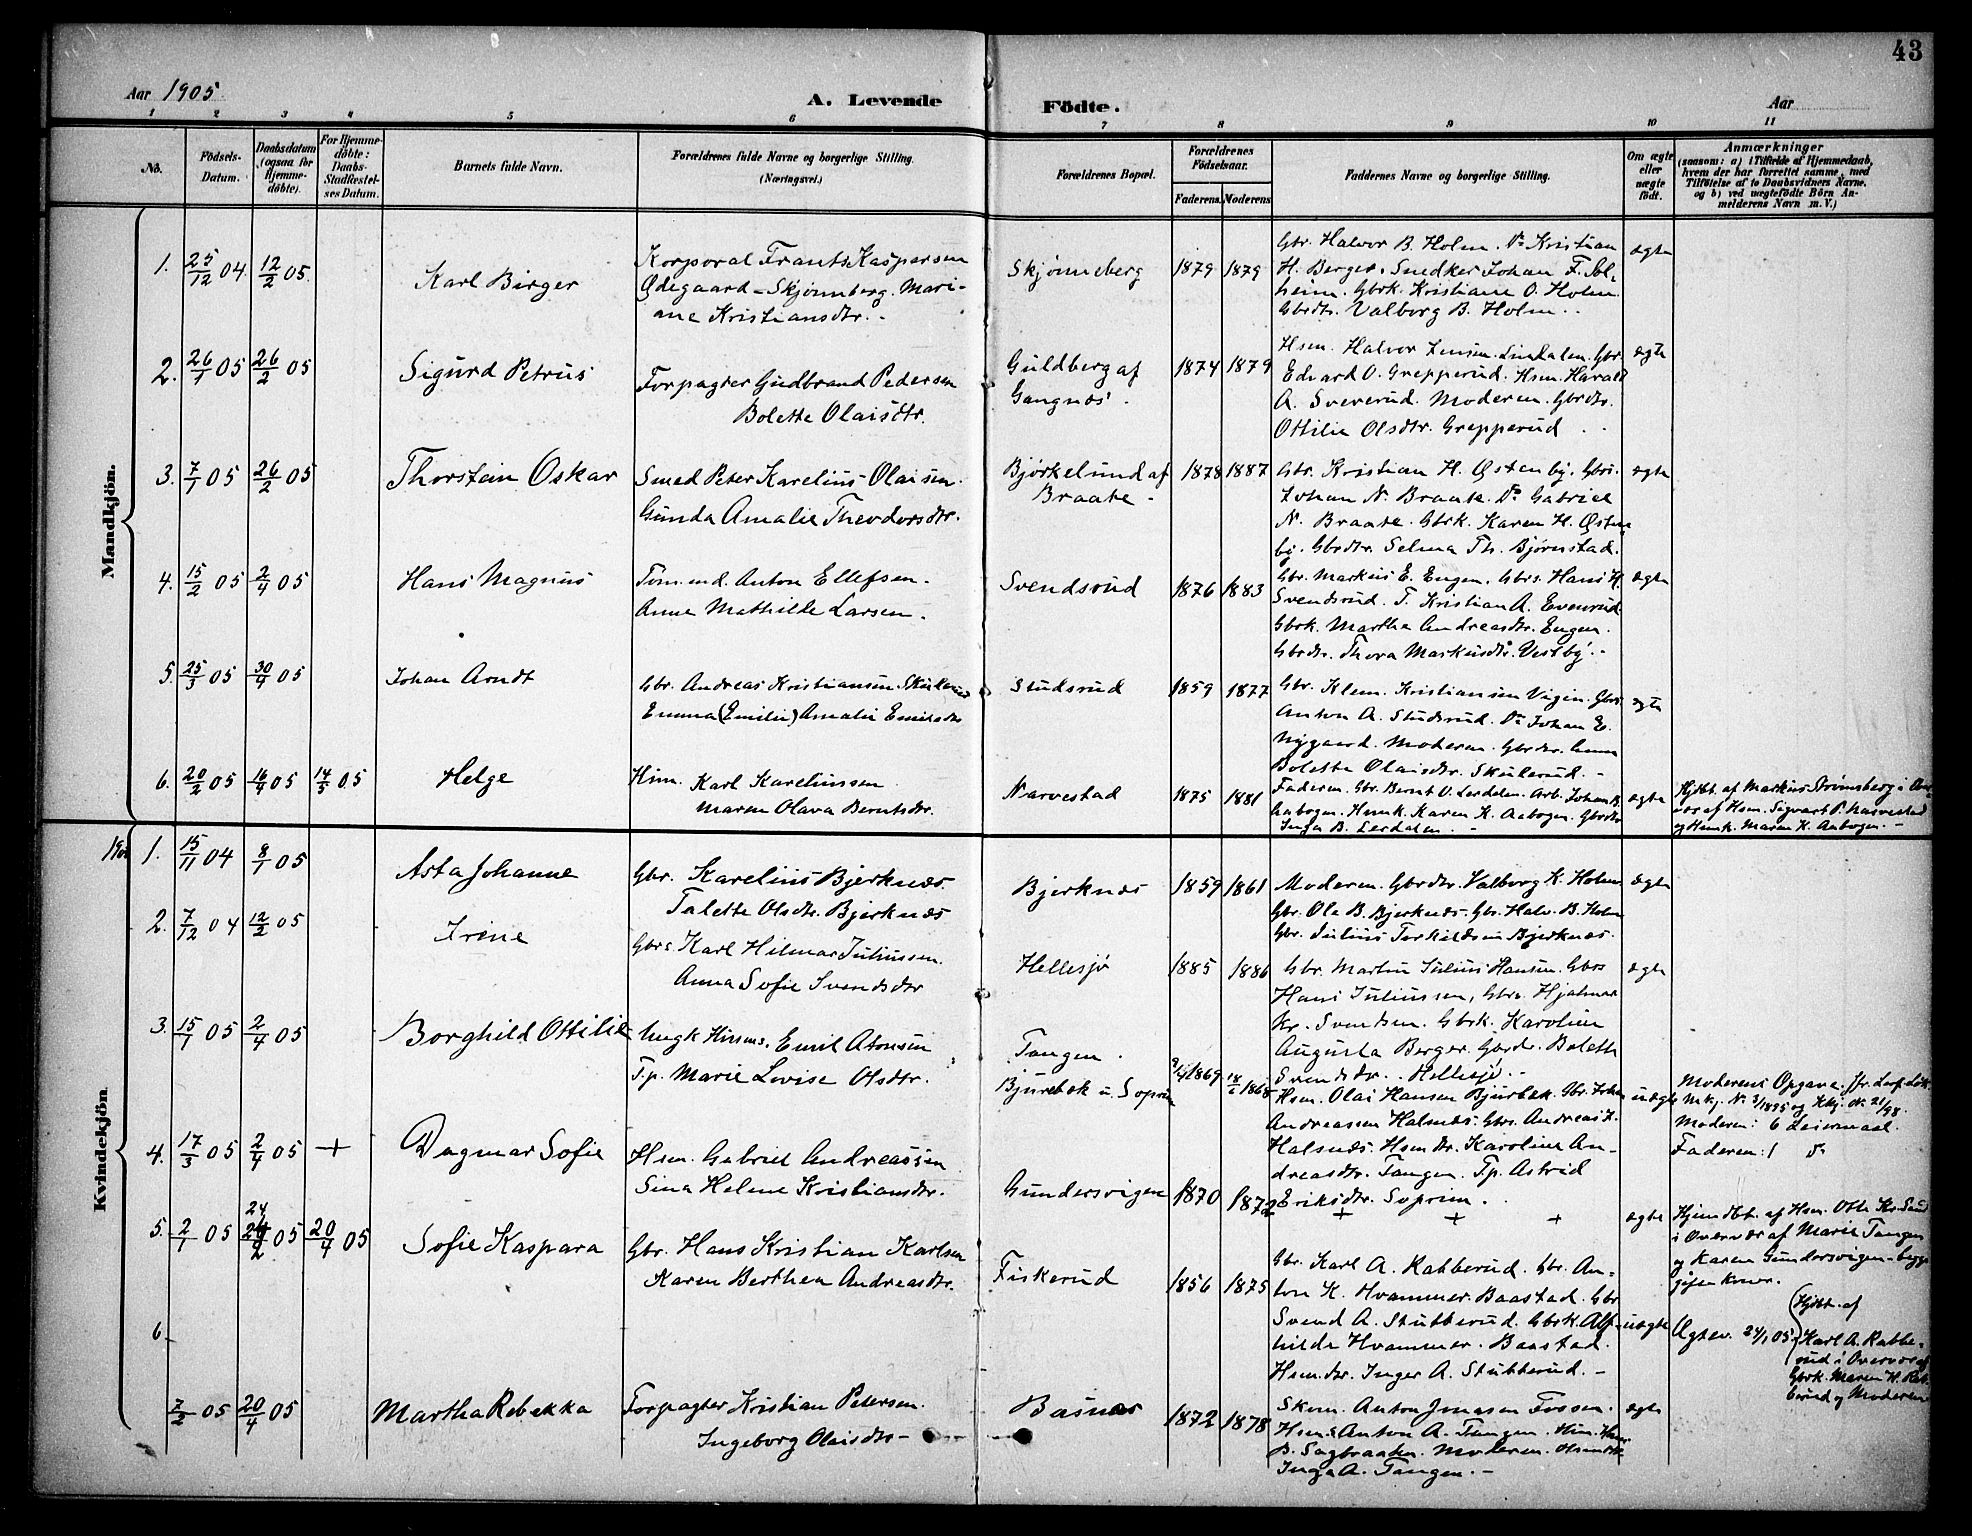 43
Aar 1905
A. Levende Födte.
Aar
1 2 3 4 5 6 7 8 9 10 11
No.
Födsels-Datum.
Daabsdatum (ogsaa for Hjemme-döbte).
For Hjemme-döbte: Daabs-Stadfæstel-ses Datum.
Barnets fulde Navn.
Forældrenes fulde Navne og borgerlige Stilling.
(Næringsvei.)
Forældrenes Bopæl.
Forældrenes Födselsaar.
Faderens. Moderens
Faddernes Navne og borgerlige Stilling.
Om ægte eller uægte födt.
Anmærkninger
(saasom: a) i Tilfælde af Hjemmedaab,
hvem der har forrettet samme, med
Tilföielse af to Daabsvidners Navne,
og b) ved uægtefödte Börn An-
melderens Navn m. V.)
Mandkjön.
1. 25/12 04. 12/2 05.
Karl Birger
Korporal Frants Kaspersen
Ødegaard - Skjønnberg. Mari-
ane Kristiansdtr. -
Skjønneberg
1879 1879
Gbr. Halvor B. Holm. Do Kristian
H. Berger. Snedker Johan F. Sol-
heim. Gbrk. Kristiane O. Holm.
Gbrdtr. Valborg B. Holm. .
ægte
2. 26/1 05 26/2 05
Sigurd Petrus
Forpagter Gudbrand Pedersen
Bolette Olaisdtr.
Guldberg af
Gangnæs.
1874 1879
Hsm. Halvor Jensen. Lindalen. Gbr.
Edvard O. Grepperud. Hsm. Harald
A. Svererud. Moderen. Gbrdtr.
Ottilie Olsdtr. Grepperud . .
ægte
3. 7/1 05 26/2 05
Thorstein Oskar
Smed Peter Karelius Olaisen.
Gunda Amalie Theodorsdtr.
Bjørkelund af
Braate -
1878 1887
Gbr. Kristian H. Østenby. Gbrs.
Johan N. Braate. Do Gabriel
N. Braate. Gbrk. Karen H. Østen
by. Gbrdtr. Selma Th. Bjørnstad.
ægte
4. 15/2 05 2/4 05
Hans Magnus
Tømmd. Anton Ellefsen.
Anne Mathilde Larsen.
Svendsrud
1876 1883
Gbr. Markus E. Engen. Gbrs. Hans H.
Svendsrud. T. Kristian A. Evenrud.
Gbrk. Martha Andreasdtr. Engen.
Gbrdtr. Thora Markusdtr. Vestby. -
ægte
5. 25/3 05 30/4 05
Johan Arndt
Gbr. Andreas Kristiansen
Emma (Emilie) Amalie Emilsdtr
Studsrud
1859 1877
Gbr. Klem. Kristiansen Vigin. Gbrs
Anton A. Studsrud. Do Johan E.
Nygaard. Moderen. Gbrdtr.
Bolette Olaisdtr. Skulerud. -
ægte
6. 20/2 05 16/4 05 14/5 05
Helge
Hsm. Karl Kareliussen
Maren Olava Berntsdtr.
Narvestad
1875 1881
Faderen. Gbr. Bernt O. Lerdalen. Arb. Johan B.
Aabogen. Hsmk. Karen K. Aabogen. Gbrdtr
Inga B. Lerdalen. -
ægte
Hjdbt. af Markus Strømsberg i
af Hsm. Sigvart P. Narvestad
og Hsmk. Maren K. Aabogen. -
Kvindekjön.
1. 15/11 04 8/1 05
Asta Johanne
Gbr. Karelius Bjerknæs.
Talette Olsdtr. Bjerknæs
Bjerknæs
1859 1861
Moderen. Gbrdtr. Valborg K. Holm
Gbr. Ole B. Bjerknæs. Gbr. Halv. B. Holm
Gbr. Julius Torkildsen Bjerknæs.
ægte
2. 7/12 04 12/2 05
Irene
Gbrs. Karl Hilmar Juliussen.
Anna Sofie Svendsdtr
Hellesjø
1885 1886
Gbr. Martin Julius Hansen. Gbrs
Hans Juliussen, Gbrs. Hjalmar
Kr. Svendsen. Gbrk. Karoline
Augusta Berger. Gbrdtr. Bolette
Svendsdtr. . Hellesjø. -
ægte
3. 15/1 05 2/4 05
Borghild Ottilie
Ungk. Emil
Tp. Marie Lovise Olsdtr.
Tangen.
Bjurbæk u. Soprim
1869 1868
Hsm. Olai Hansen Bjurbæk. Gbr. Johan
Andreassen Halsnæs. Gbrs. Andreas J.
Halsnæs. Hsmdtr. Karoline An-
dreasdtr. Tangen. Tp. Astrid
Eriksdtr. Soprim. .
uægte
Moderens Opgave.
Mkj. No 3/1895 og Kkj. No 21/98.
Moderen: 6 Leiermaal.
Faderen: 1 do
4. 17/3 05 2/4 05 +
Dagmar Sofie
Hsm. Gabriel Andreassen
Sina Helene Kristiansdtr.
Gundersvigen
1870 1872
+ + +
ægte
Hjemdbt. af Hsm. Otto Kr. Sand
i Overvær af Marie Tangen
og Karen Gundersvigen - begge
gifte Koner.
5. 2/1 05 24/2 05 20/4 05
Sofie Kaspara
Gbr. Hans Kristian Karlsen
Karen Berthea Andreasdtr.
Fiskerud
1856 1875
Gbr. Karl A. Rabberud. Gbr. An-
ton K. Hvammer. Baastad. Gbr
Svend A. Stubberud. Gbrk. Alf-
hilde Hvammer. Baastad.
Hsmdtr. Inger A. Stubberud. -
uægte
Ægtev. 24/1 05
Hjdbt. af
Karl A. Rabbe-
rud i Overvær af
Gbrk. Maren H. Rab
berud og Moderen
6
7/3 05 20/4 05
Martha Rebekka
Forpagter Kristian Petersen.
Ingeborg Olaisdtr -
Basnæs
1872 1878
Skom. Anton Jonasen Fossen.
Hsms Anton A. Tangen. Hsm. Hans
B. Sagbraaten. Moderen. Hsmdtr
Inga A. Tangen. -
ægte